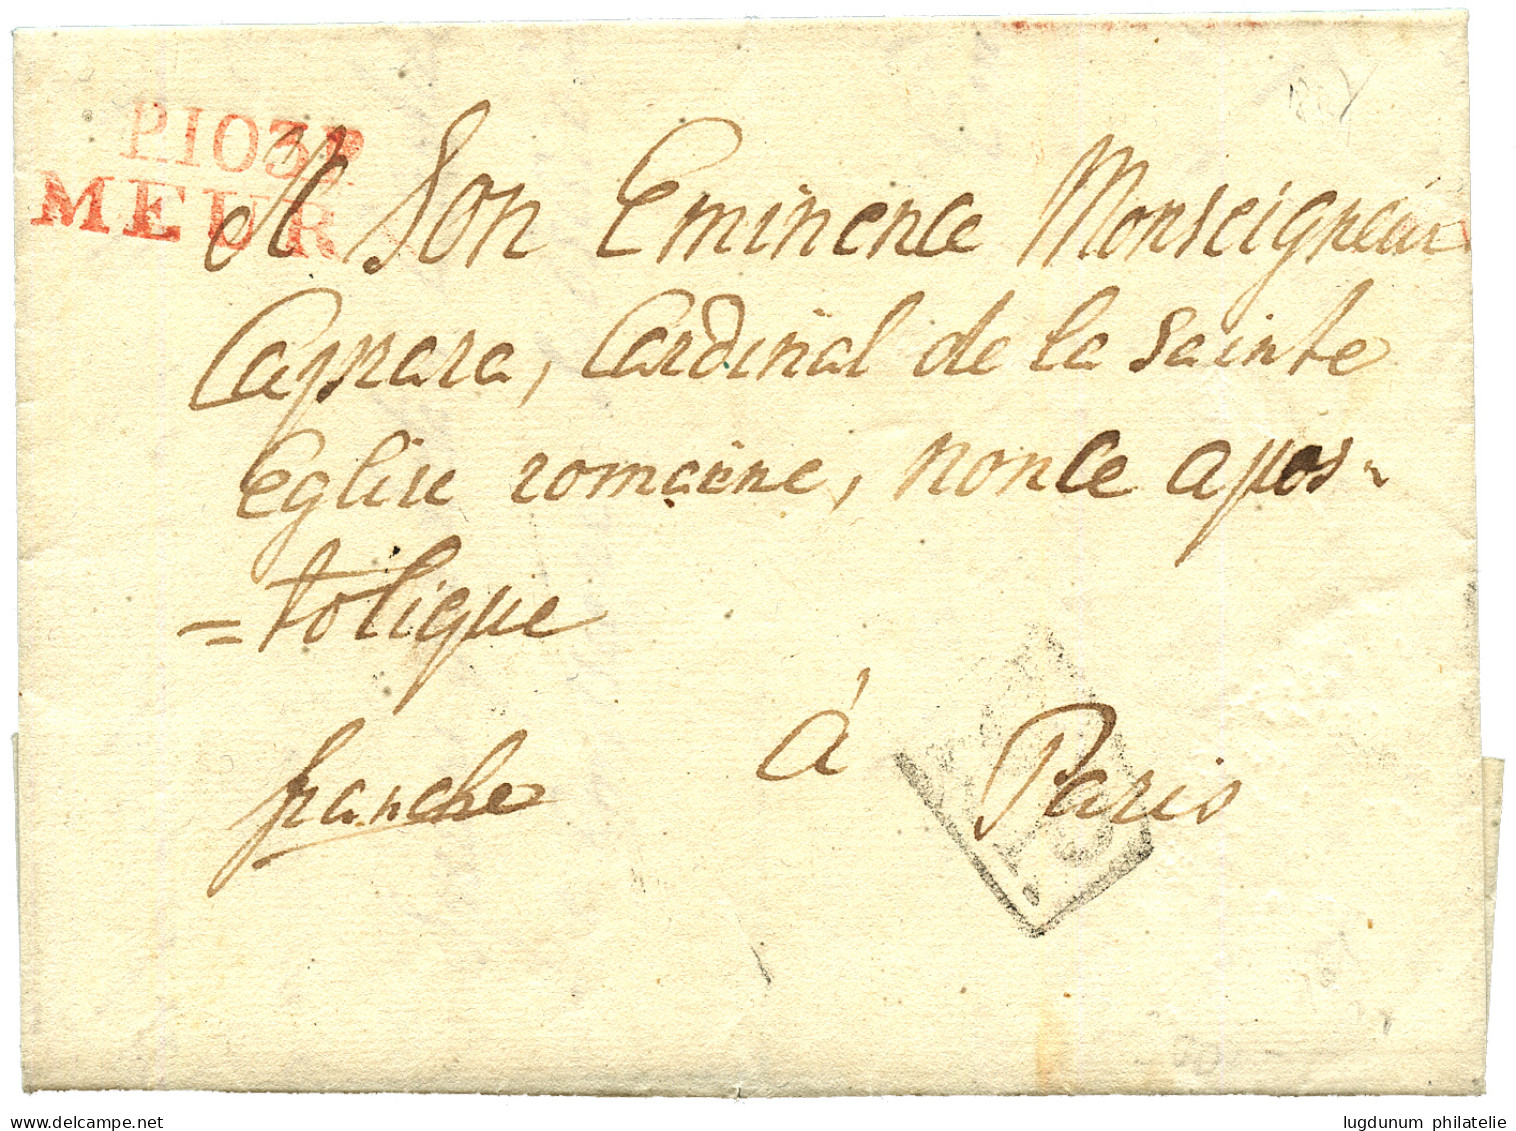 P.103.P.
MEURS
A Son Eminence Monseigneur
Caprara, Cardinal de la Sainte
Eglise romaine, nonce apos-
=tolique
à Paris
franche
www.delcampe.net
lugdunum philatelie